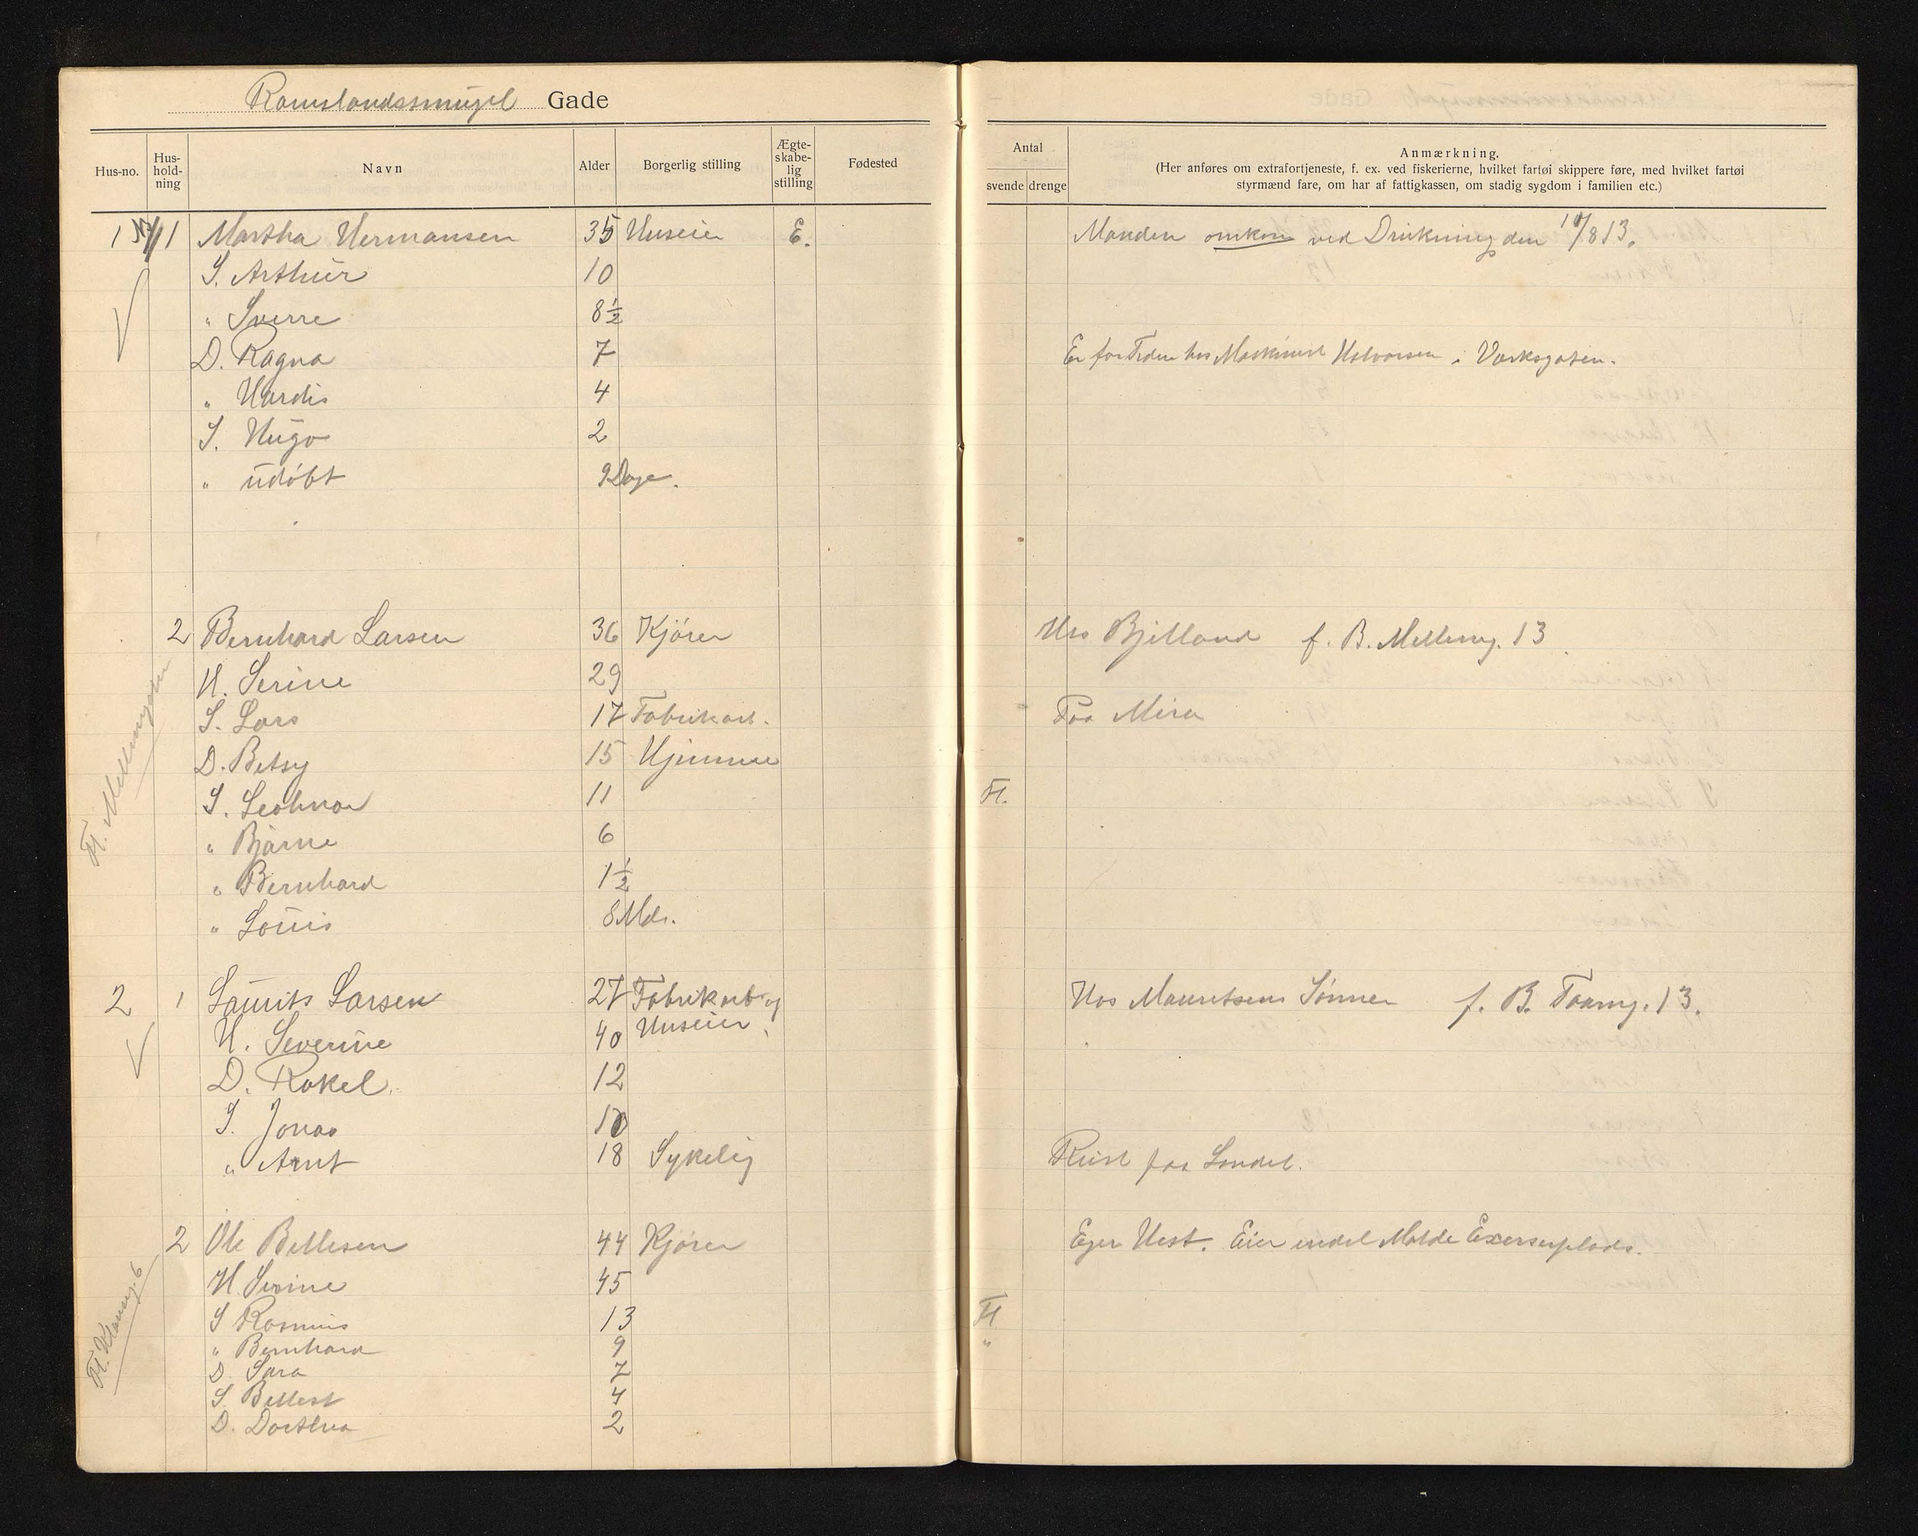 Ramslandssmuget Gade
Hus-no.
Hus-
hold-
ning
Navn
Alder
Borgerlig stilling
Ægte-
skabe-
lig
stilling
Fødested
Antal
svende drenge
Anmærkning.
(Her anføres om extrafortjeneste, f. ex. ved fiskerierne, hvilket fartøi skippere føre, med hvilket fartøi
styrmænd fare, om har af fattigkassen, om stadig sygdom i familien etc.)
1 1 Martha Hermansen 35 Huseier E. Manden omkom ved Drukning den 10/8 13.
S. Arthur 10
" Sverre 8½
D. Ragna 7 Er for Tiden hos Maskinist Halvorsen i Værksgaten.
" Hardis 4
S. Hugo 2
" udøbt 9 Dage.
2 Bernhard Larsen 36 Kjører Hos Bjelland f. B. Mellemg. 13
H. Serine 29
S. Lars 17 Fabrikarb. Paa Mira
D. Betsy 15 Hjemme
S. Leohnar 11 Fl.
" Bjarne 6
" Bernhard 1½
" Louis 8 Mdr.
Fl. Mellemgaten
2 1 Laurits Larsen 27 Fabrikarb og Hos Mauritsens Sønner f. B. Taarng. 13.
Huseier
H. Severine 40
D. Rakel 12
S. Jonas 10
" Arnt 18 Sykelig Reist paa Landet.
2 Ole Bellesen 44 Kjører Eger Hest. Eier endel Molde Exerserplads.
H. Serine 45
S Rasmus 13 Fl.
" Bernhard 9 "
D Sara 7
S. Bellest 4
D. Dorthea 2
Fl. Klausg. 6